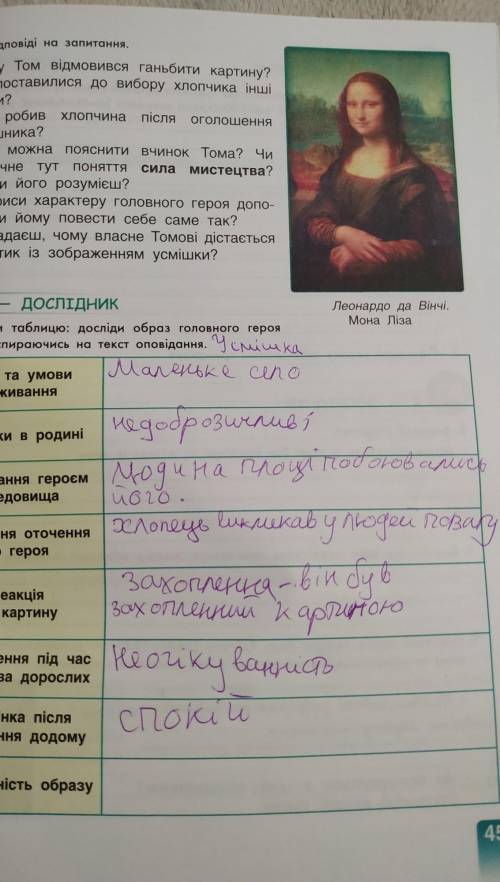 дповіді на запитання.
у Том відмовився ганьбити картину?
поставилися до вибору хлопчика інші
и?
робив хлопчина після оголошення
шника?
можна пояснити вчинок Тома? Чи
чне тут поняття сила мистецтва?
и його розумієш?
риси характеру головного героя допо-
и йому повести себе саме так?
адаєш, чому власне Томові дістається
тик із зображенням усмішки?
Леонардо да Вінчі.
Мона Ліза
— ДОСЛІДНИК
и таблицю: досліди образ головного героя
спираючись на текст оповідання. Усмішка
та умови
живання
Маленьке село
ки в родині
недоброзичливі
ання героєм
едовища
Люди на площі побоювались
його.
ня оточення
о героя
Хлопець викликав у людей повагу
еакція
картину
Захоплення - він був
захопленний картиною
ення під час
ва дорослих
Неочікуванність
інка після
ння додому
спокій
ність образу
45